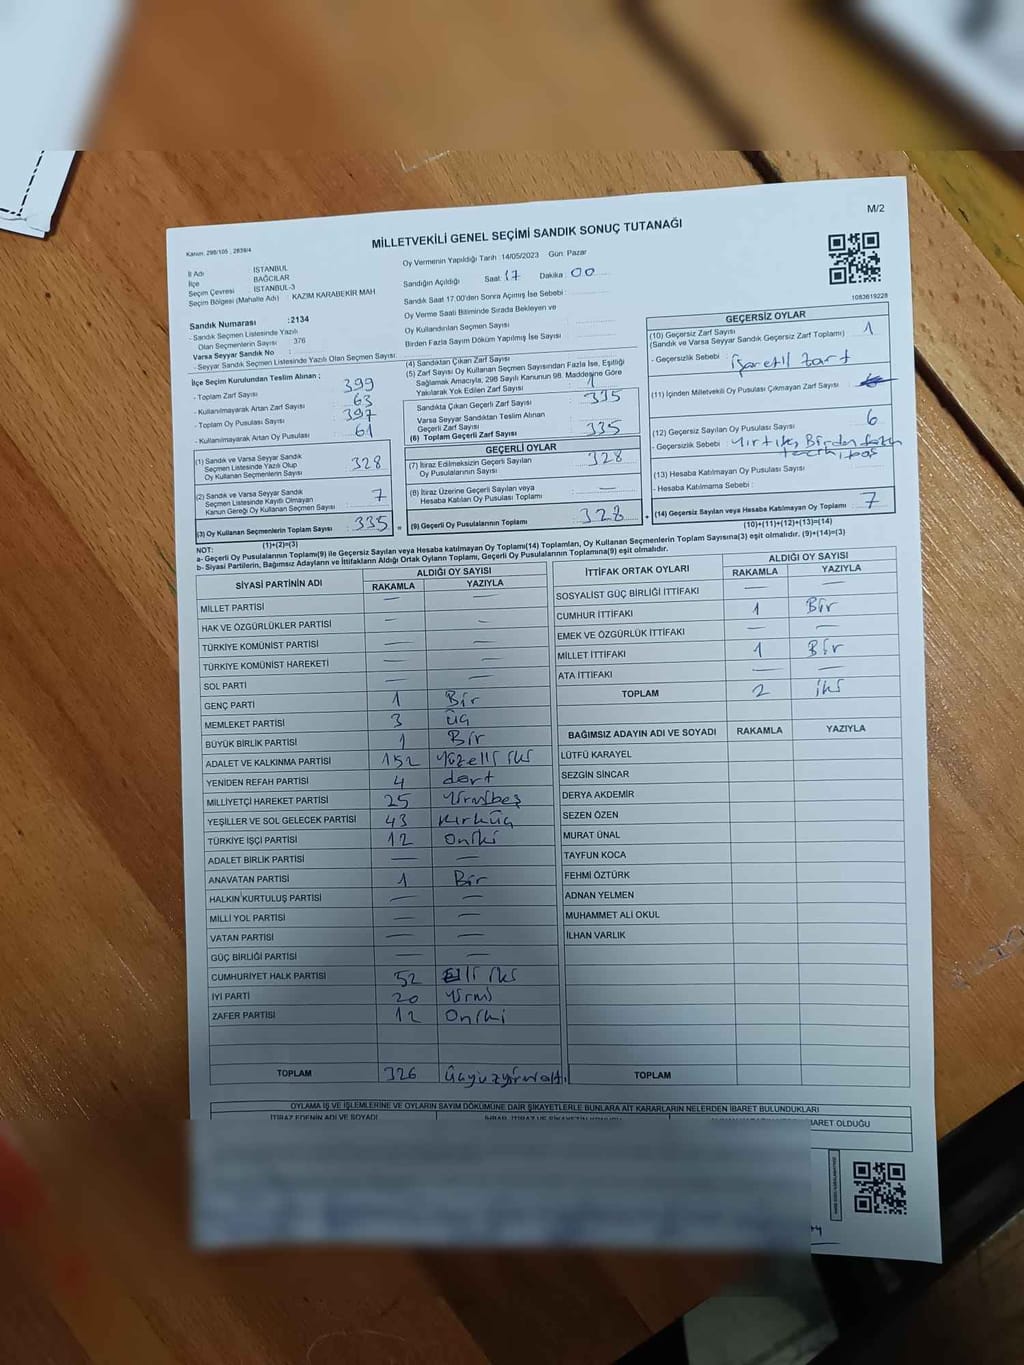 M/2
Kanun: 298/105 , 2839/4
MİLLETVEKİLİ GENEL SEÇİMİ SANDIK SONUÇ TUTANAĞI
İl Adı : İSTANBUL
İlçe : BAĞCILAR
Seçim Çevresi : İSTANBUL-3
Seçim Bölgesi (Mahalle Adı) : KAZIM KARABEKİR MAH
Sandık Numarası :2134
- Sandık Seçmen Listesinde Yazılı
Olan Seçmenlerin Sayısı : 376
Varsa Seyyar Sandık No :
- Seyyar Sandık Seçmen Listesinde Yazılı Olan Seçmen Sayısı:
İlçe Seçim Kurulundan Teslim Alınan ;
- Toplam Zarf Sayısı : 399
- Kullanılmayarak Artan Zarf Sayısı : 63
- Toplam Oy Pusulası Sayısı : 397
- Kullanılmayarak Artan Oy Pusulası : 61
(1) Sandık ve Varsa Seyyar Sandık
Seçmen Listesinde Yazılı Olup
Oy Kullanan Seçmenlerin Sayısı : 328
(2) Sandık ve Varsa Seyyar Sandık
Seçmen Listesinde Kayıtlı Olmayan
Kanun Gereği Oy Kullanan Seçmen Sayısı : 7
(3) Oy Kullanan Seçmenlerin Toplam Sayısı : 335 =
(1)+(2)=(3)
Oy Vermenin Yapıldığı Tarih :14/05/2023 Gün: Pazar
Sandığın Açıldığı Saat: 17 Dakika : 00
Sandık Saat 17.00'den Sonra Açılmış İse Sebebi :
Oy Verme Saati Bitiminde Sırada Bekleyen ve
Oy Kullandırılan Seçmen Sayısı
Birden Fazla Sayım Döküm Yapılmış İse Sayısı :
(4) Sandıktan Çıkan Zarf Sayısı
(5) Zarf Sayısı Oy Kullanan Seçmen Sayısından Fazla İse, Eşitliği
Sağlamak Amacıyla, 298 Sayılı Kanunun 98. Maddesine Göre
Yakılarak Yok Edilen Zarf Sayısı
Sandıkta Çıkan Geçerli Zarf Sayısı : 335
Varsa Seyyar Sandıktan Teslim Alınan
Geçerli Zarf Sayısı
(6) Toplam Geçerli Zarf Sayısı : 335
GEÇERLİ OYLAR
(7) İtiraz Edilmeksizin Geçerli Sayılan
Oy Pusulalarının Sayısı : 328
(8) İtiraz Üzerine Geçerli Sayılan veya
Hesaba Katılan Oy Pusulası Toplamı : —
(9) Geçerli Oy Pusulalarının Toplamı : 328 +
1083619228
GEÇERSİZ OYLAR
(10) Geçersiz Zarf Sayısı
(Sandık ve Varsa Seyyar Sandık Geçersiz Zarf Toplamı) : 1
- Geçersizlik Sebebi : işaretli zarf
(11) İçinden Milletvekili Oy Pusulası Çıkmayan Zarf Sayısı
(12) Geçersiz Sayılan Oy Pusulası Sayısı : 6
- Geçersizlik Sebebi : Yırtık, Birden fazla
(13) Hesaba Katılmayan Oy Pusulası Sayısı :
- Hesaba Katılmama Sebebi :
(14) Geçersiz Sayılan veya Hesaba Katılmayan Oy Toplamı : 7
(10)+(11)+(12)+(13)=(14)
NOT:
a- Geçerli Oy Pusulalarının Toplamı(9) ile Geçersiz Sayılan veya Hesaba katılmayan Oy Toplamı(14) Toplamları, Oy Kullanan Seçmenlerin Toplam Sayısına(3) eşit olmalıdır. (9)+(14)=(3)
b- Siyasi Partilerin, Bağımsız Adayların ve İttifakların Aldığı Ortak Oyların Toplamı, Geçerli Oy Pusulalarının Toplamına(9) eşit olmalıdır.
SİYASİ PARTİNİN ADI ALDIĞI OY SAYISI
RAKAMLA YAZIYLA
MİLLET PARTİSİ — —
HAK VE ÖZGÜRLÜKLER PARTİSİ — —
TÜRKİYE KOMÜNİST PARTİSİ — —
TÜRKİYE KOMÜNİST HAREKETİ — —
SOL PARTİ — —
GENÇ PARTİ 1 Bir
MEMLEKET PARTİSİ 3 üç
BÜYÜK BİRLİK PARTİSİ 1 Bir
ADALET VE KALKINMA PARTİSİ 152 Yüzelli iki
YENİDEN REFAH PARTİSİ 4 dört
MİLLİYETÇİ HAREKET PARTİSİ 25 Yirmibeş
YEŞİLLER VE SOL GELECEK PARTİSİ 43 Kırküç
TÜRKİYE İŞÇİ PARTİSİ 12 Oniki
ADALET BİRLİK PARTİSİ — —
ANAVATAN PARTİSİ 1 Bir
HALKIN KURTULUŞ PARTİSİ — —
MİLLİ YOL PARTİSİ — —
VATAN PARTİSİ — —
GÜÇ BİRLİĞİ PARTİSİ — —
CUMHURİYET HALK PARTİSİ 52 Elli iki
İYİ PARTİ 20 Yirmi
ZAFER PARTİSİ 12 Oniki
TOPLAM 326 Üçyüzyirmialtı
İTTİFAK ORTAK OYLARI ALDIĞI OY SAYISI
RAKAMLA YAZIYLA
SOSYALİST GÜÇ BİRLİĞİ İTTİFAKI — —
CUMHUR İTTİFAKI 1 Bir
EMEK VE ÖZGÜRLÜK İTTİFAKI — —
MİLLET İTTİFAKI 1 Bir
ATA İTTİFAKI — —
TOPLAM 2 iki
BAĞIMSIZ ADAYIN ADI VE SOYADI RAKAMLA YAZIYLA
LÜTFÜ KARAYEL
SEZGİN SİNCAR
DERYA AKDEMİR
SEZEN ÖZEN
MURAT ÜNAL
TAYFUN KOCA
FEHMİ ÖZTÜRK
ADNAN YELMEN
MUHAMMET ALİ OKUL
İLHAN VARLIK
TOPLAM
OYLAMA İŞ VE İŞLEMLERİNE VE OYLARIN SAYIM DÖKÜMÜNE DAİR ŞİKAYETLERLE BUNLARA AİT KARARLARIN NELERDEN İBARET BULUNDUKLARI
İTİRAZ EDENİN ADI VE SOYADI
BARET OLDUĞU